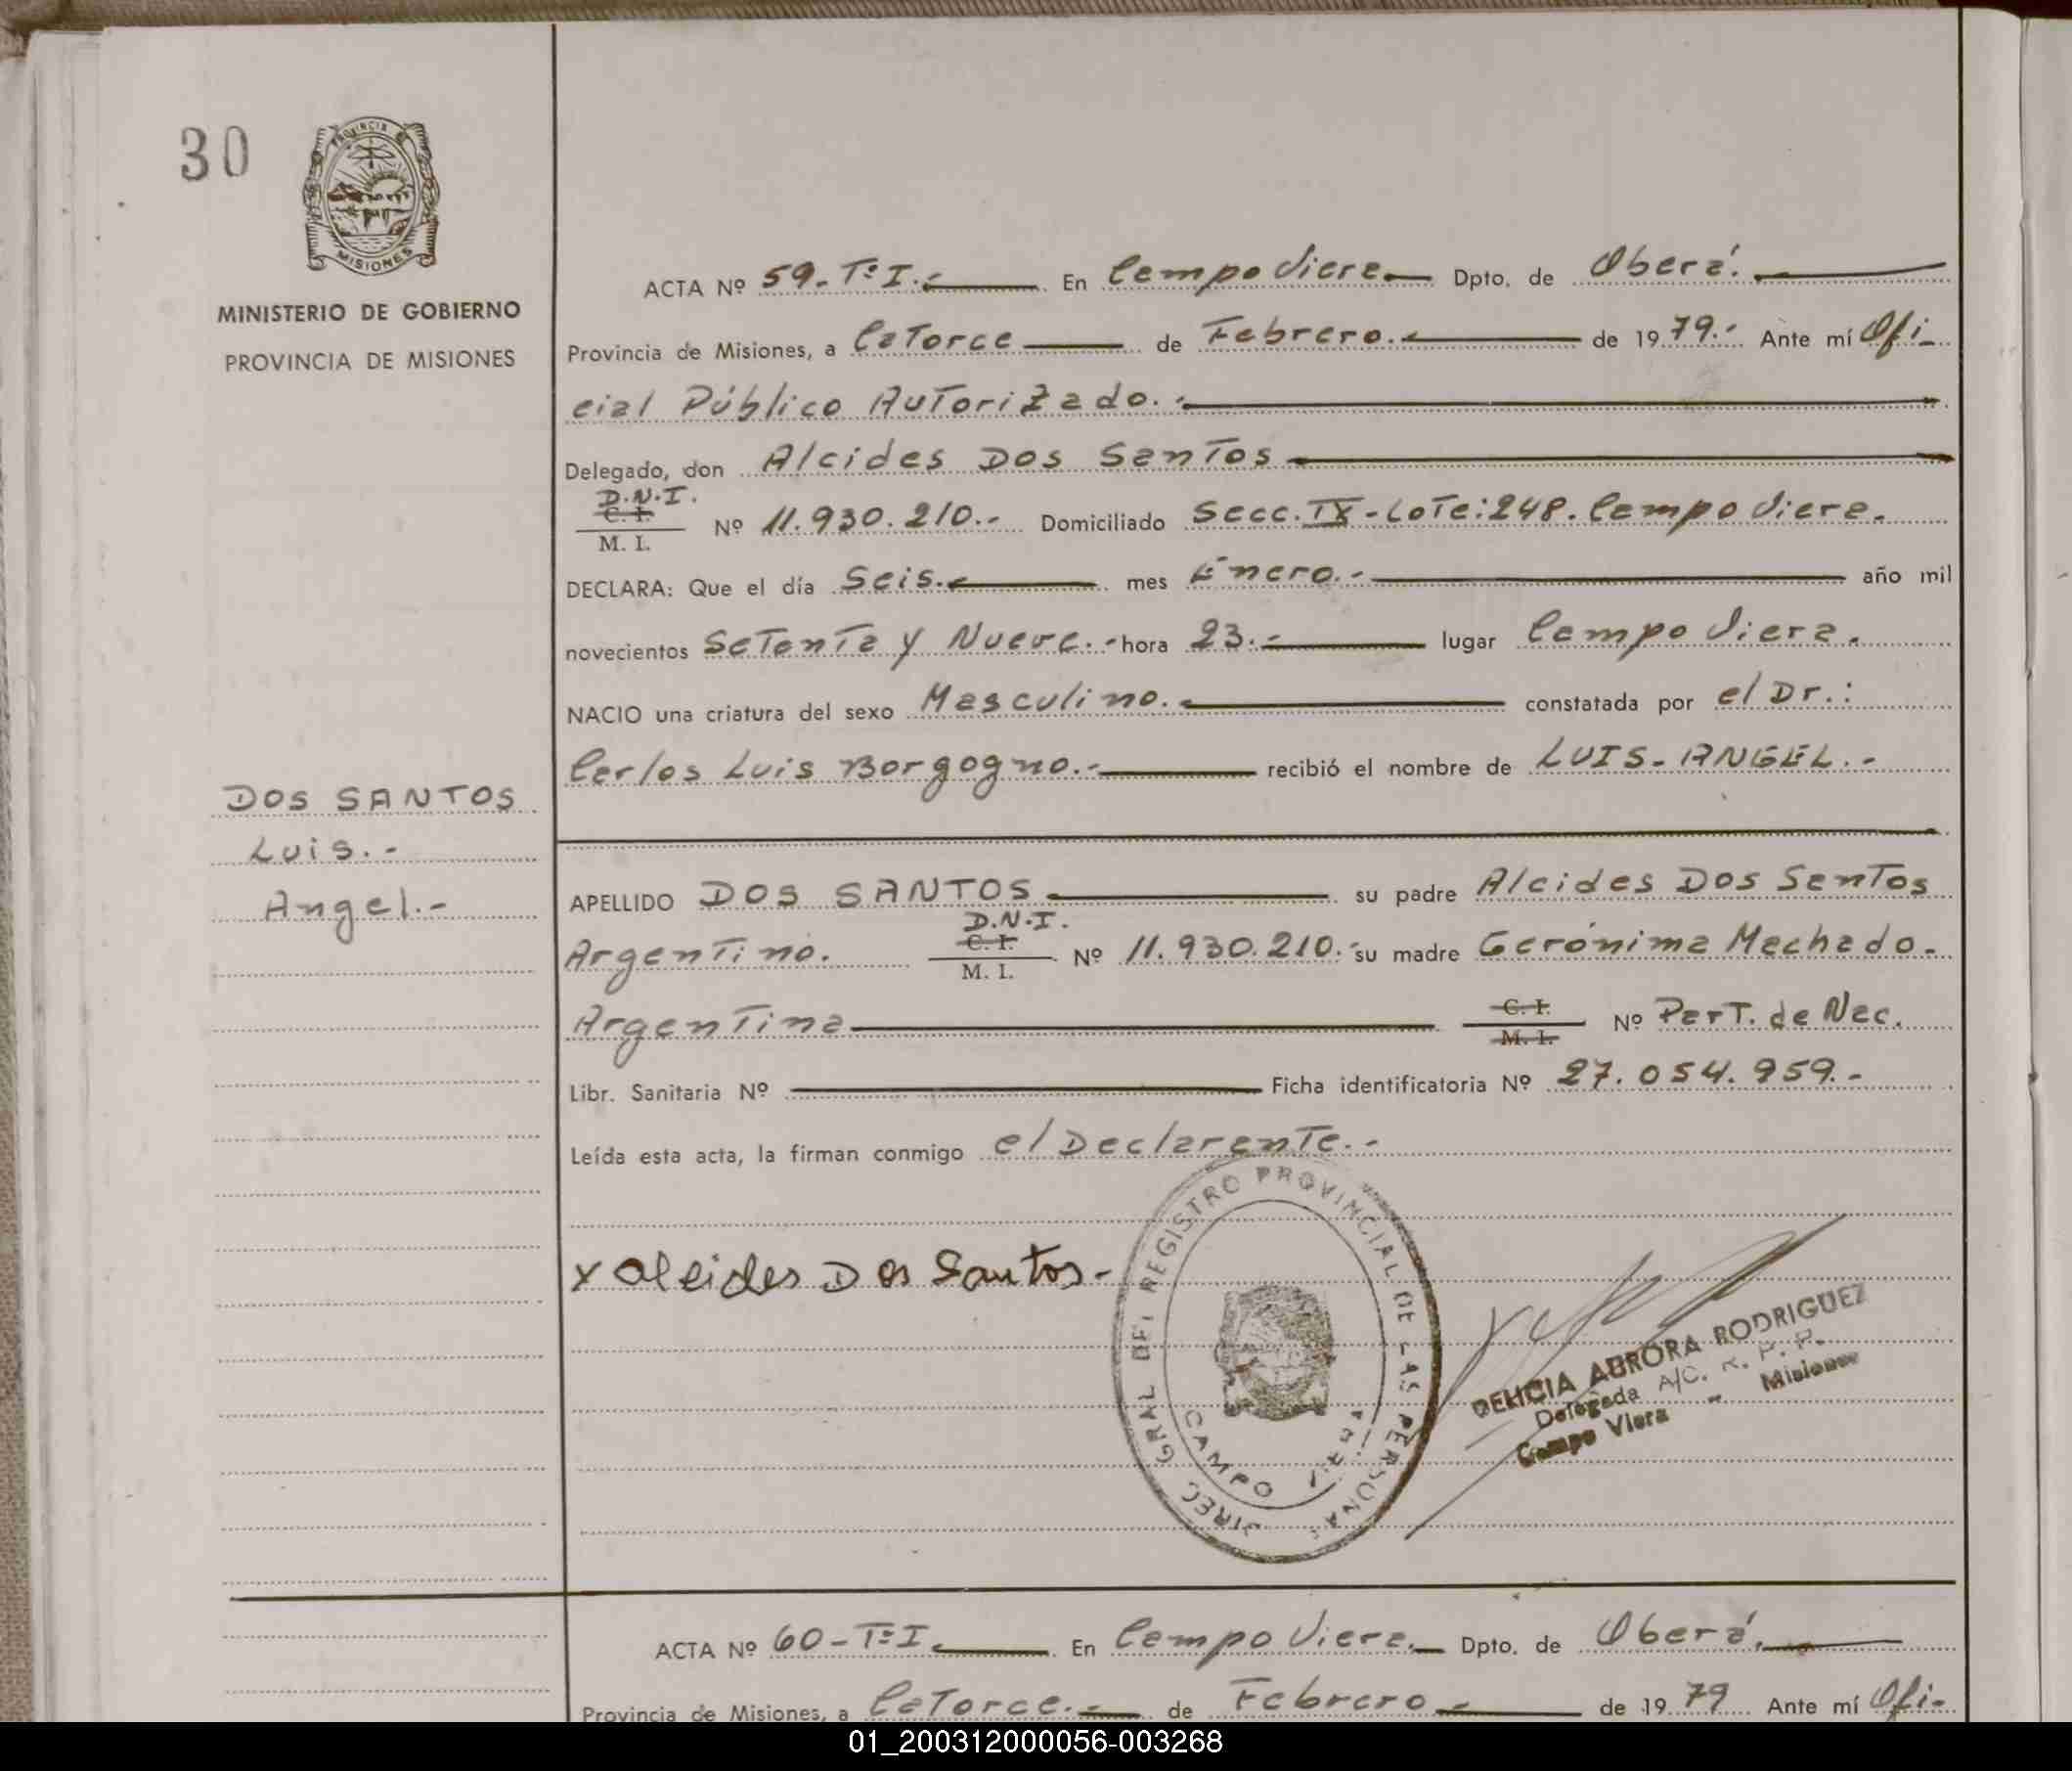 30
PROVINCIA DE
MISIONES
MINISTERIO DE GOBIERNO
PROVINCIA DE MISIONES
ACTA Nº 59-Tº I.- En Campo Viera Dpto. de Oberá.
Provincia de Misiones, a Catorce de Febrero.- de 1979.- Ante mí Ofi-
cial Público Autorizado.-
Delegado, don Alcides Dos Santos
D.N.I.
C. I.
M. I.
Nº 11.930.210.- Domiciliado Secc. IX-Lote:248. Campo Viera.
DECLARA: Que el día Seis.- mes Enero.- año mil
novecientos Setenta y Nueve.- hora 23.- lugar Campo Viera.
NACIO una criatura del sexo Masculino.- constatada por el Dr.:
Carlos Luis Borgogno.- recibió el nombre de LUIS-ANGEL.-
DOS SANTOS
Luis.-
Angel.-
APELLIDO DOS SANTOS su padre Alcides Dos Santos
Argentino. D.N.I. C. I. M. I. Nº 11.930.210.- su madre Gerónima Machado.-
Argentina C. I. M. I. Nº Part. de Nac.
Libr. Sanitaria Nº Ficha identificatoria Nº 27.054.959.-
Leída esta acta, la firman conmigo el Declarante.-
x Alcides Dos Santos-
DIREC. GRAL DEL REGISTRO PROVINCIAL DE LAS PERSONAS
CAMPO VIERA
DELICIA AURORA RODRIGUEZ
Delegada A/C. R. P. P.
Campo Viera - Misiones
ACTA Nº 60-Tº I. En Campo Viera. Dpto. de Oberá.
Provincia de Misiones, a Catorce.- de Febrero de 1979 Ante mí Ofi-
01_200312000056-003268